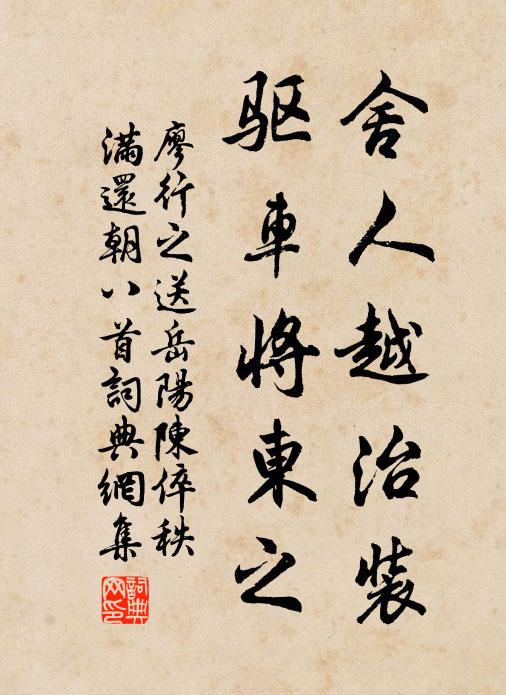 舍人越治裝
驱車將東之
廖行之送岳陽陳倅秩
滿還朝八首詞典網集
詞典網印